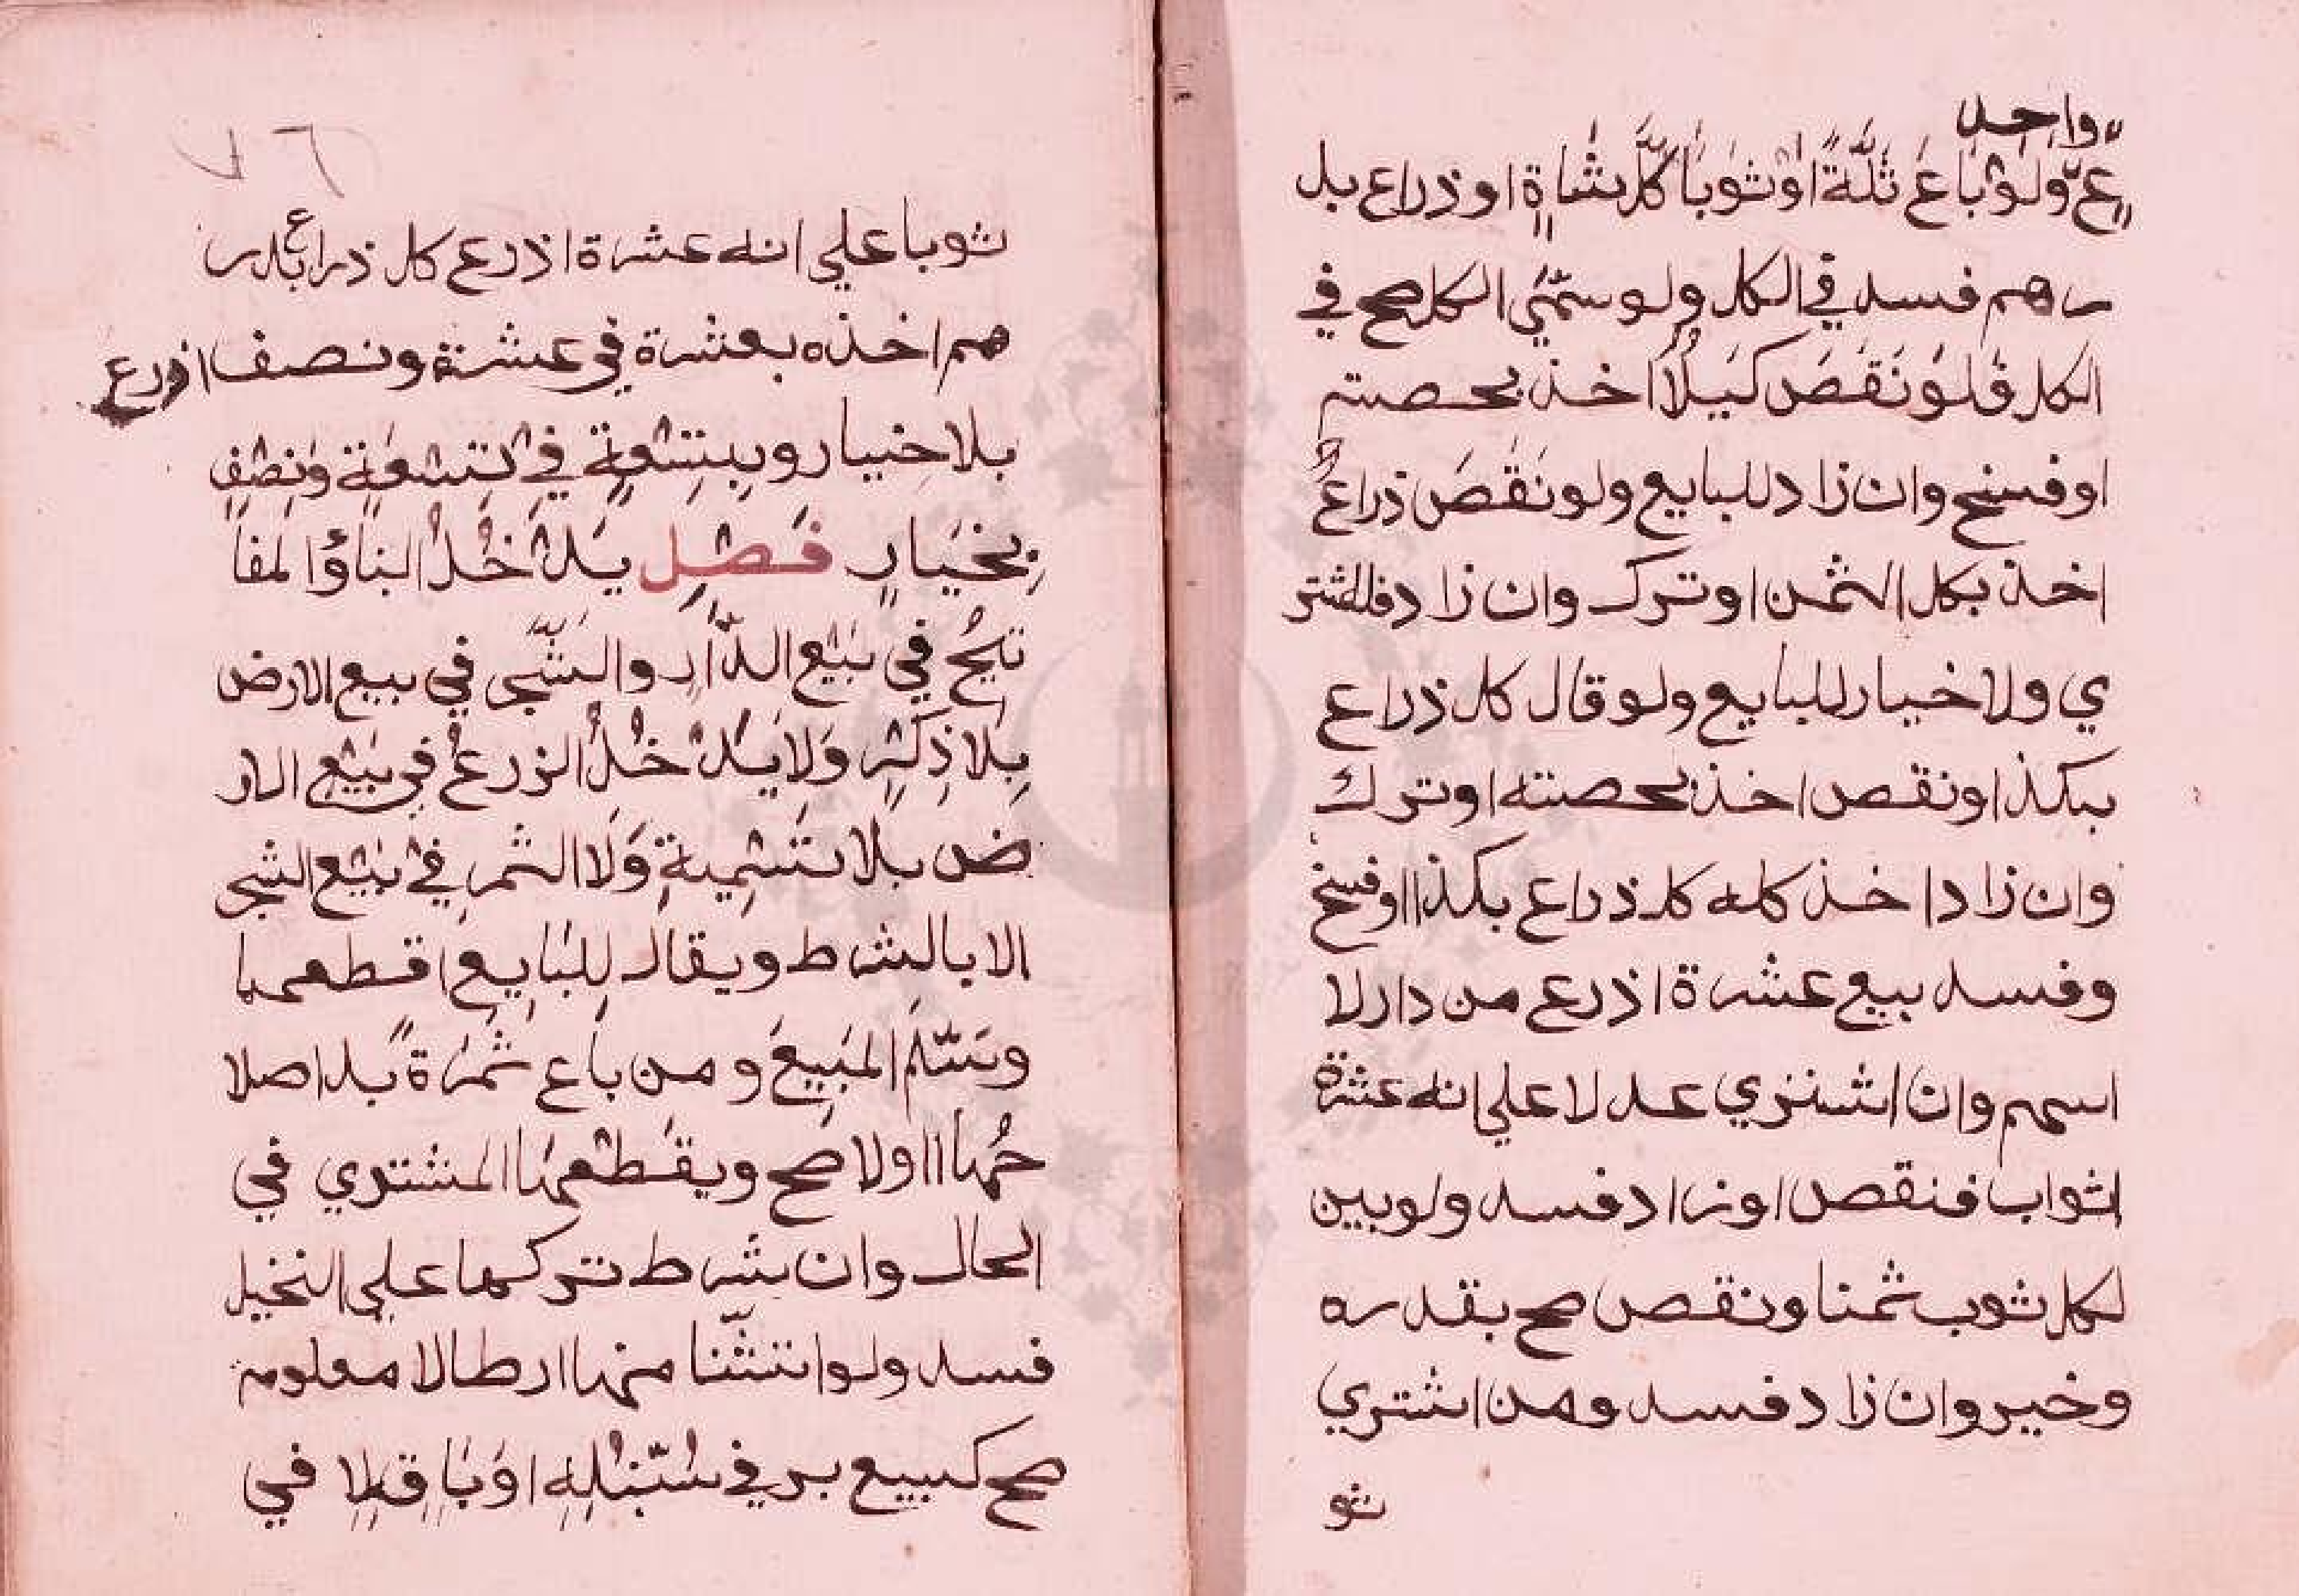 واحد
عٍ وَلَوْ بَاعَ ثَلَّةً اَوْ ثَوْبًا كُلَّ شَاةٍ او ذراع بد
رهم فسد في الكل ولو سمّي الكل صح في
الكل فَلَوْ نَقَصَ كَيْلٌ اخذ بحصته
او فسخ وان زاد للبايع ولو نَقَصَ ذراعٌ
اخذ بكل الثمن او ترك وان زاد فللمشتر
ي ولا خيار للبايع ولو قال كل ذراع
بكذا ونقص اخذ بحصته او ترك
وان زاد اخذ كله كل ذراع بكذا او فسخ
وفسد بيع عشرة اذرع من دار لا
اسهم وان اشتري عدلا علي انه عشرة
اثواب فنقص او زاد فسد ولو بين
لكل ثوب ثمنا ونقص صح بقدره
وخير وان زاد فسد ومن اشتري
ثو
٧٦
ثوبا علي انه عشرة اذرع كل ذراع بدر
هم اخذه بعشرة في عشرة ونصف اذرع
بلا خيار وبِتِسْعةٍ في تِسْعَةٍ ونِصْفٍ
بِخيَارٍ فَصْل يَدْخُلُ البناؤ المفا
تيحُ في بَيْعِ الدَّارِ والشَّجر في بيع الارض
بِلَا ذِكْرٍ وَلَا يَدْخُلُ الزرعُ في بَيْعِ الار
ض بلا تَسْمِيةٍ وَلَا الثمر في بَيْعِ الشجر
الا بالشرط ويقال لِلبَايِعِ اقطعها
وسَلّمِ المَبِيعَ ومن باع ثَمَرَةً بدا صلا
حُها اولا صح ويقَطْعها المشتري في
الحال وان شرط تركها علي النخيل
فسد ولو استثنا منها ارطالا معلومة
صح كبيع بر في سُنْبُلِهِ اوْ بَاقِلا في